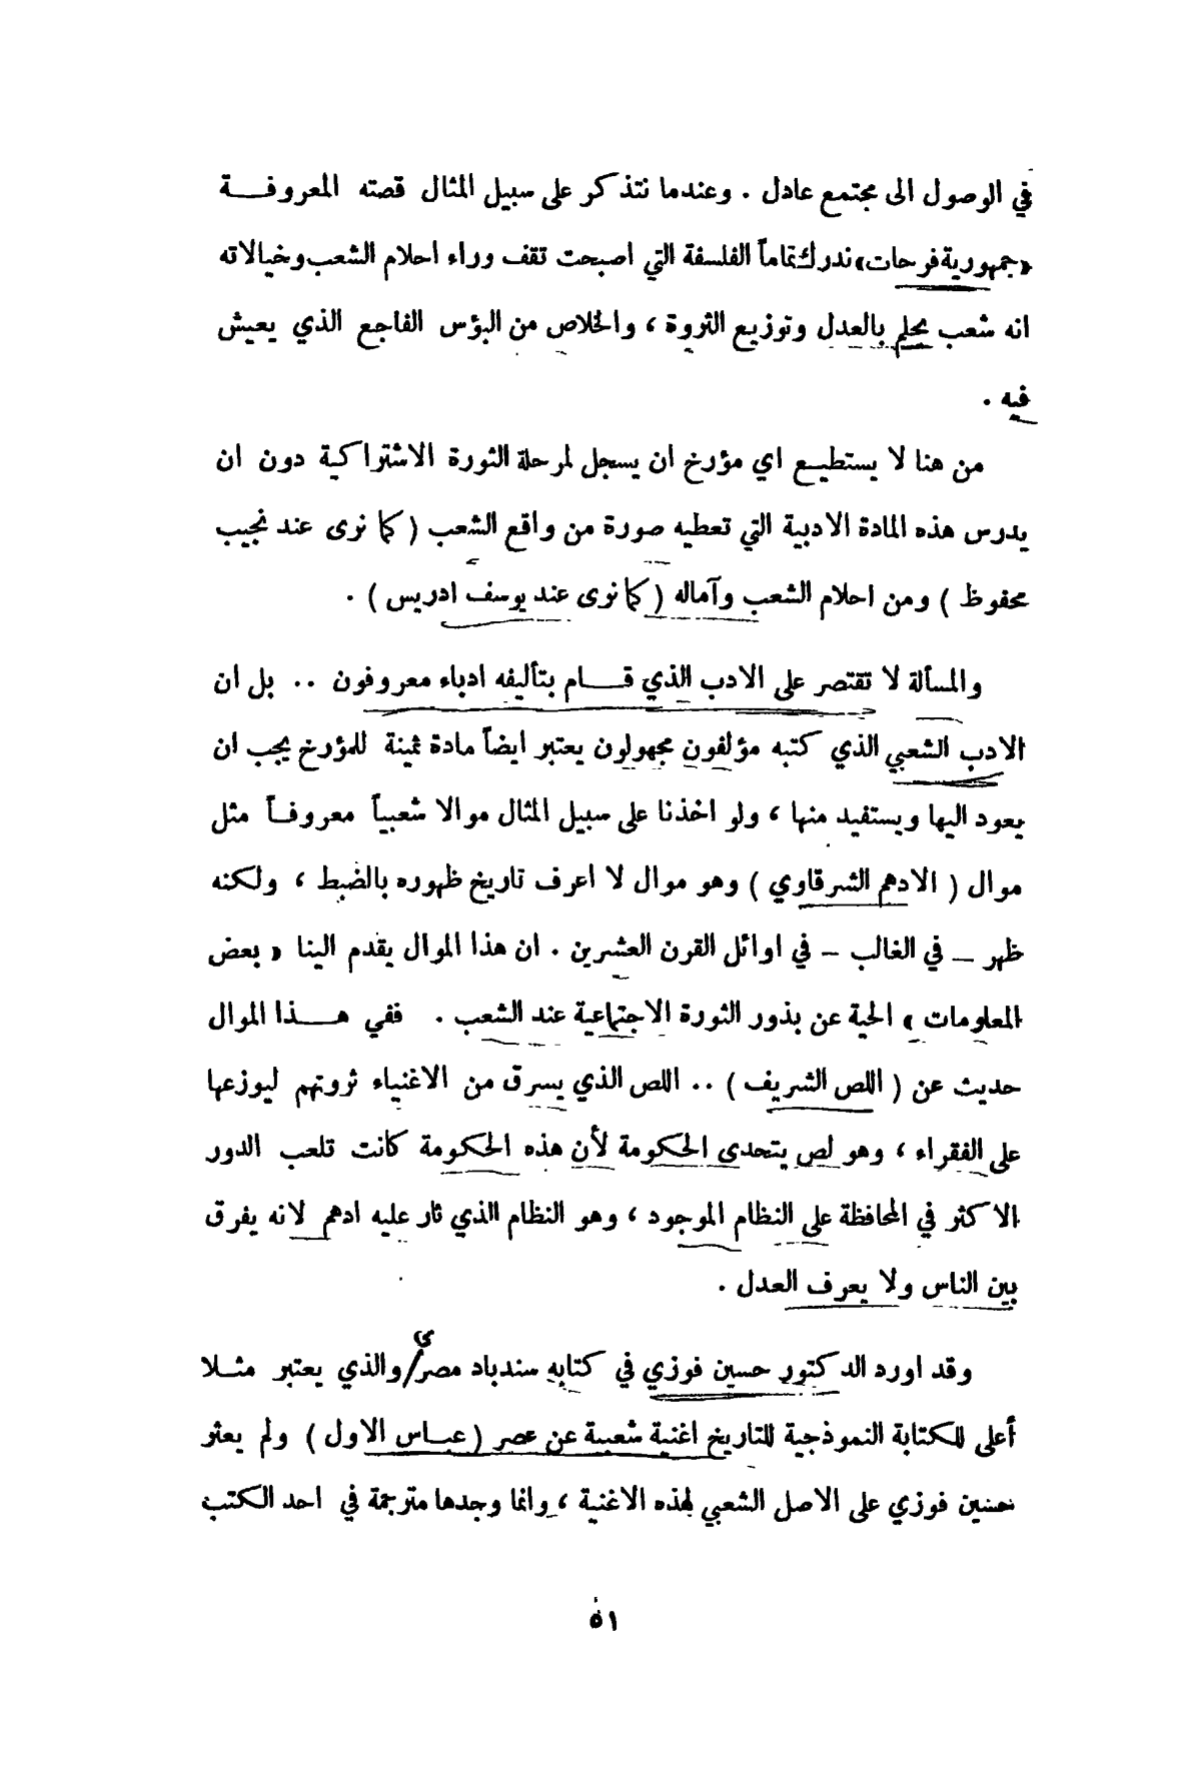 في الوصول الى مجتمع عادل . وعندما نتذكر على سبيل المثال قصته المعروفة
«جمهورية فرحات» ندرك تماماً الفلسفة التي اصبحت تقف وراء احلام الشعب وخيالاته
انه شعب يحلم بالعدل وتوزيع الثروة ، والخلاص من البؤس الفاجع الذي يعيش
فيه .
من هنا لا يستطيع اي مؤرخ ان يسجل لمرحلة الثورة الاشتراكية دون ان
يدرس هذه المادة الادبية التي تعطيه صورة من واقع الشعب ( كما نرى عند نجيب
محفوظ ) ومن احلام الشعب وآماله ( كما نرى عند يوسف ادريس ) .
والمسألة لا تقتصر على الادب الذي قام بتأليفه ادباء معروفون .. بل ان
الادب الشعبي الذي كتبه مؤلفون مجهولون يعتبر ايضاً مادة ثمينة للمؤرخ يجب ان
يعود اليها ويستفيد منها ، ولو اخذنا على سبيل المثال موالا شعبياً معروفاً مثل
موال ( الادهم الشرقاوي ) وهو موال لا اعرف تاريخ ظهوره بالضبط ، ولكنه
ظهر – في الغالب – في اوائل القرن العشرين . ان هذا الموال يقدم الينا « بعض
المعلومات » الحية عن بذور الثورة الاجتماعية عند الشعب . ففي هذا الموال
حديث عن ( اللص الشريف ) .. اللص الذي يسرق من الاغنياء ثروتهم ليوزعها
على الفقراء ، وهو لص يتحدى الحكومة لأن هذه الحكومة كانت تلعب الدور
الاكثر في المحافظة على النظام الموجود ، وهو النظام الذي ثار عليه ادهم لانه يفرق
بين الناس ولا يعرف العدل .
وقد اورد الدكتور حسين فوزي في كتابه سندباد مصري والذي يعتبر مثلا
أعلى للكتابة النموذجية للتاريخ اغنية شعبية عن عصر ( عباس الاول ) ولم يعثر
حسين فوزي على الاصل الشعبي لهذه الاغنية ، وانما وجدها مترجمة في احد الكتب
٥١